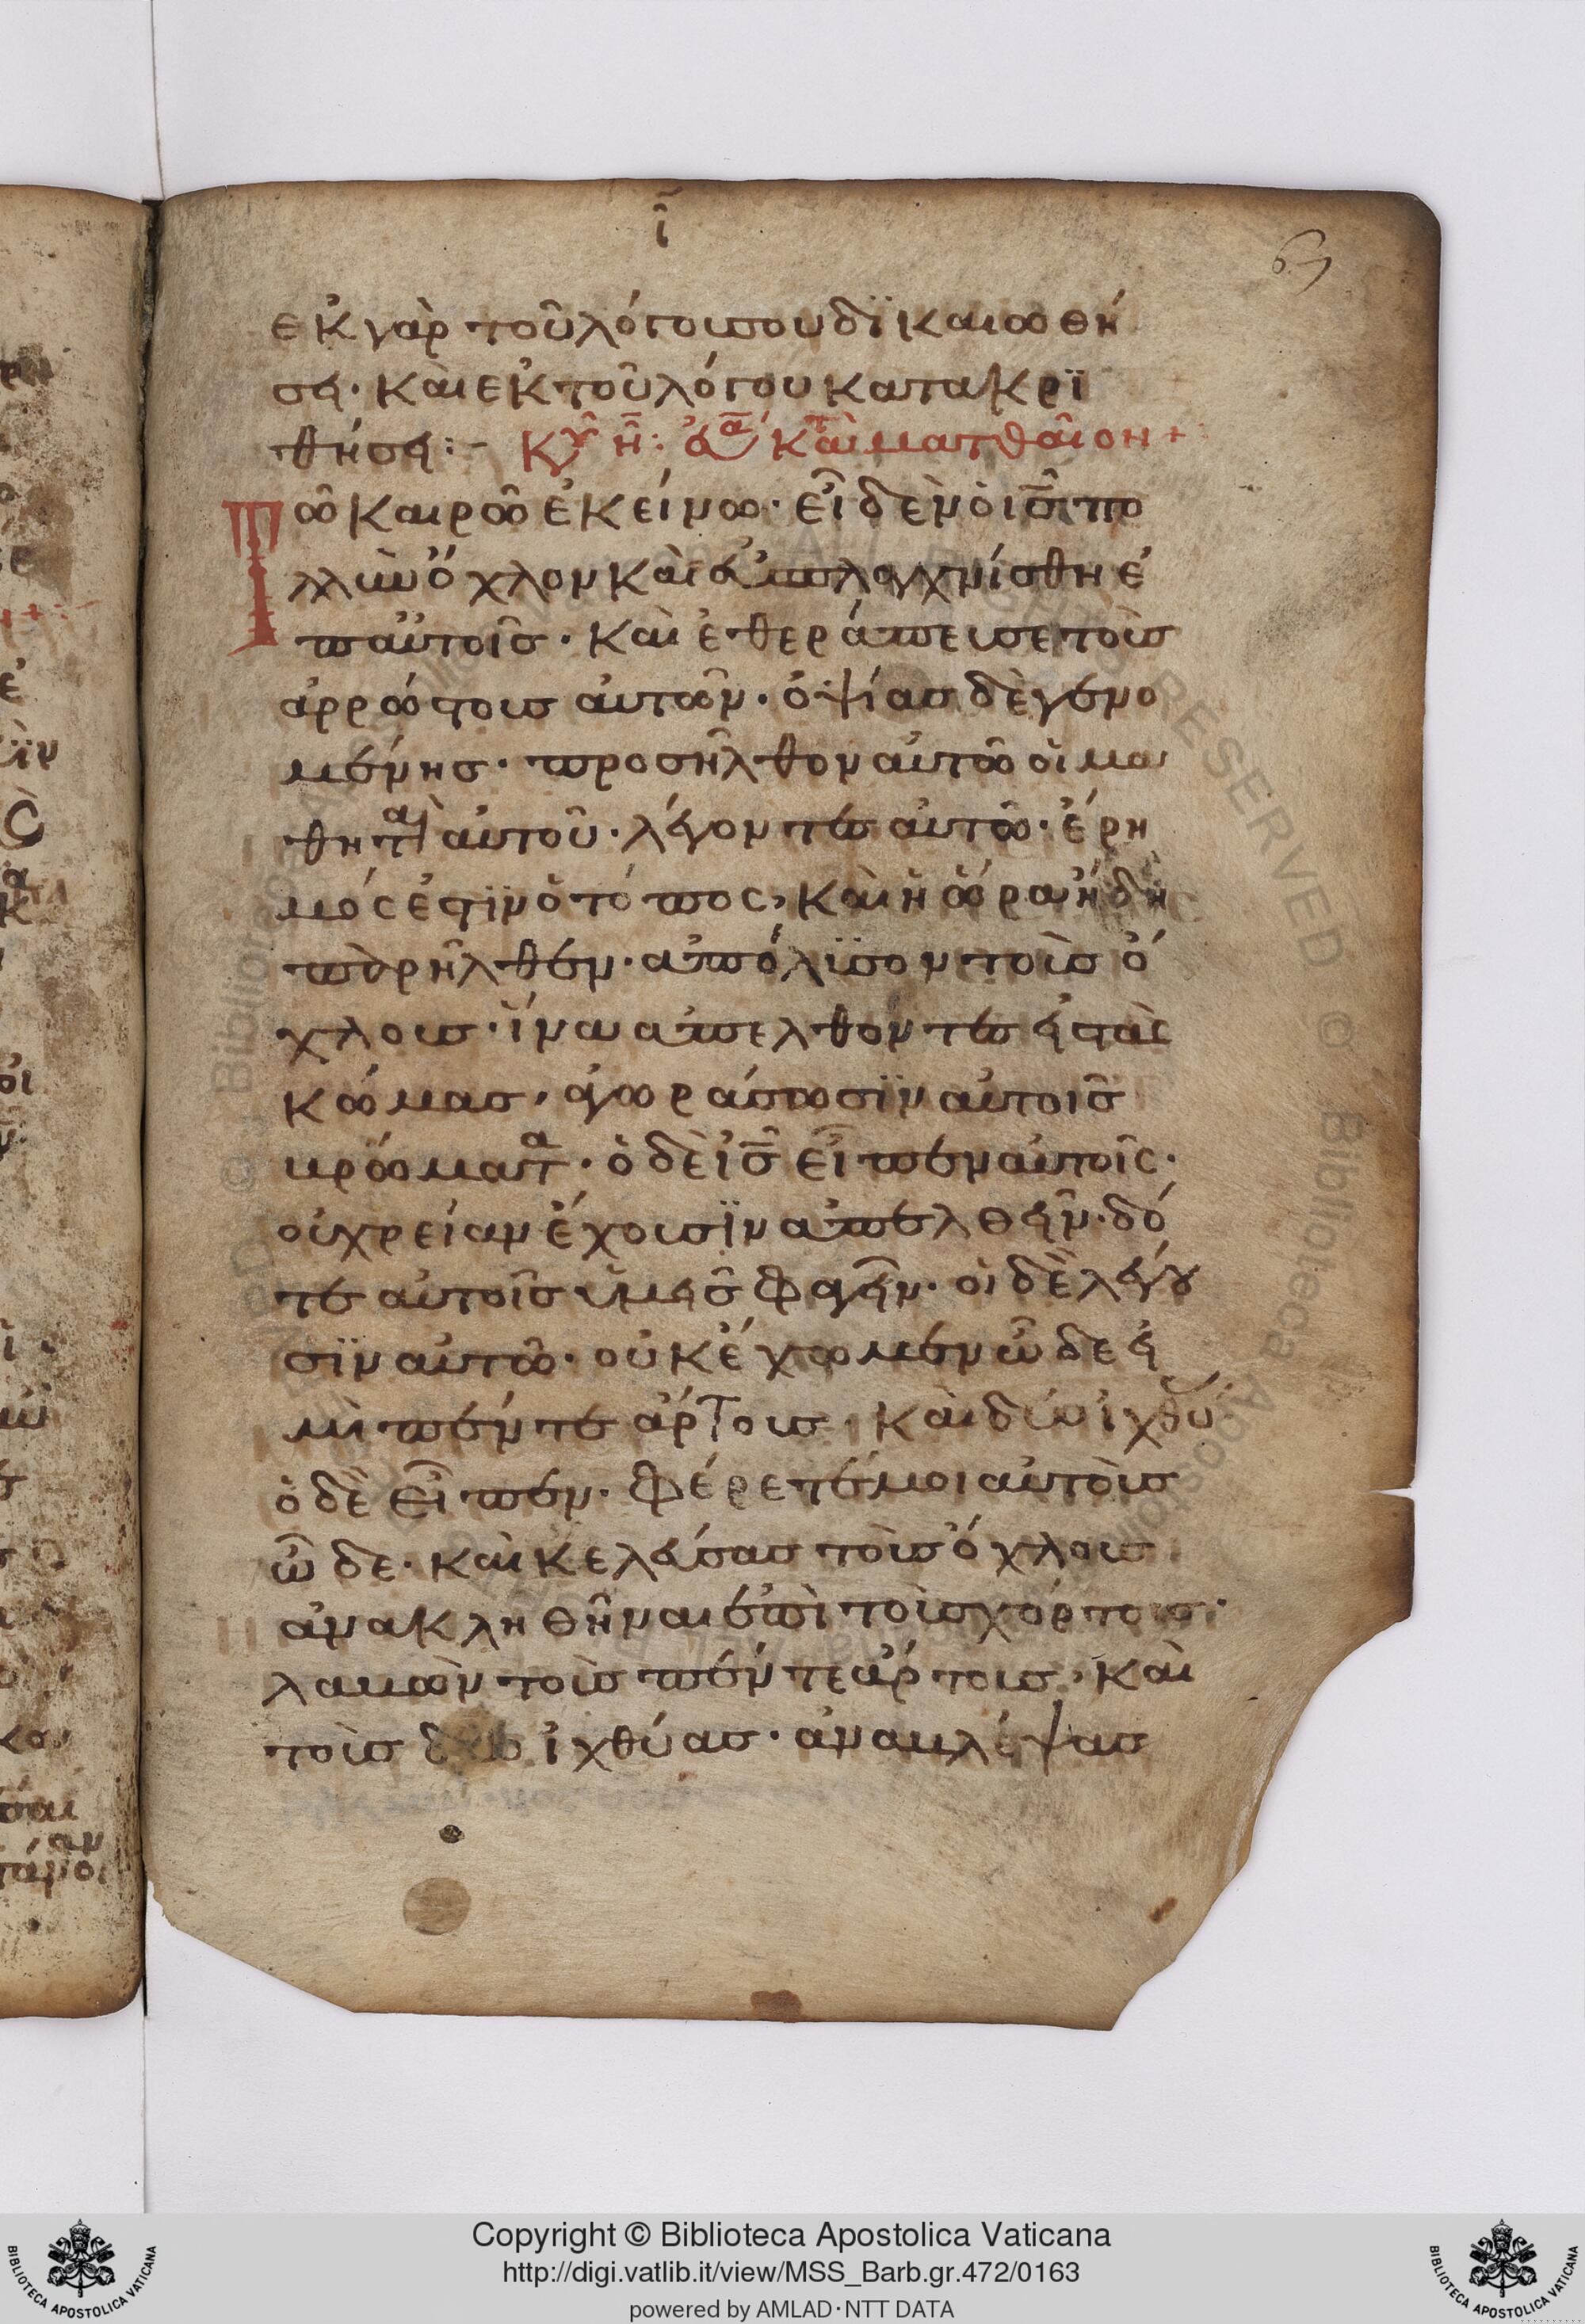 ῑ̂
69
ἐκ γὰρ τοῦ λόγου σου δϊκαιωθή
ση· καὶ ἐκ τοῦ λόγου κατακρϊ
θήση:– Κυ η̅: ἐυα κατὰ ματθαῖον +
Τῶ καιρῶ ἐκείνω· εἶδεν ὁ ι̅ς̅ πο
λλὺν ὄχλον καὶ ἐσπλαγχνίσθη ἐ
π αὐτοῖς· καὶ ἐθεράπευσε τοὺς
ἀρρώστους αὐτῶν· ὀψίας δὲ γενο
μένης· προσῆλθον αὐτῶ οἱ μα
θηταὶ αὐτοῦ· λέγοντες αὐτῶ· ἔρη
μός ἐστϊν ὁ τόπος, καὶ ἡ ὥρα ἤδη
παρῆλθεν· ἀπόλϋσον τοὺς ὄ
χλους· ἵνα ἀπελθόντες εἰς τὰς
κώμας, ἀγωράσωσϊν αὐτοῖς
βρώματα· ὁ δὲ ι̅ς̅ εἶπεν αὐτοῖς·
οὐ χρείαν ἔχουσϊν ἀπελθεῖν· δό
τε αὐτοῖς ὑμεῖς φαγεῖν· οἱ δὲ λέγου
σϊν αὐτῶ· οὐκ ἔχωμεν ὧδε εἰ
μὶ πέντε ἄρτους· καὶ δύο ἰχθύας
ὁ δὲ εἶπεν· φέρετέ μοι αὐτοὺς
ὧδε· καὶ κελεύσας τοὺς ὄχλους
ἀνακληθῆναι ἐπὶ τοὺς χόρτους·
λαβὼν τοὺς πέντε ἄρτους, καὶ
τοὺς δύο ἰχθύας· ἀναβλέψας
Copyright © Biblioteca Apostolica Vaticana
http://digi.vatlib.it/view/MSS_Barb.gr.472/0163
powered by AMLAD·NTT DATA
BIBLIOTECA APOSTOLICA VATICANA
BIBLIOTECA APOSTOLICA VATICANA